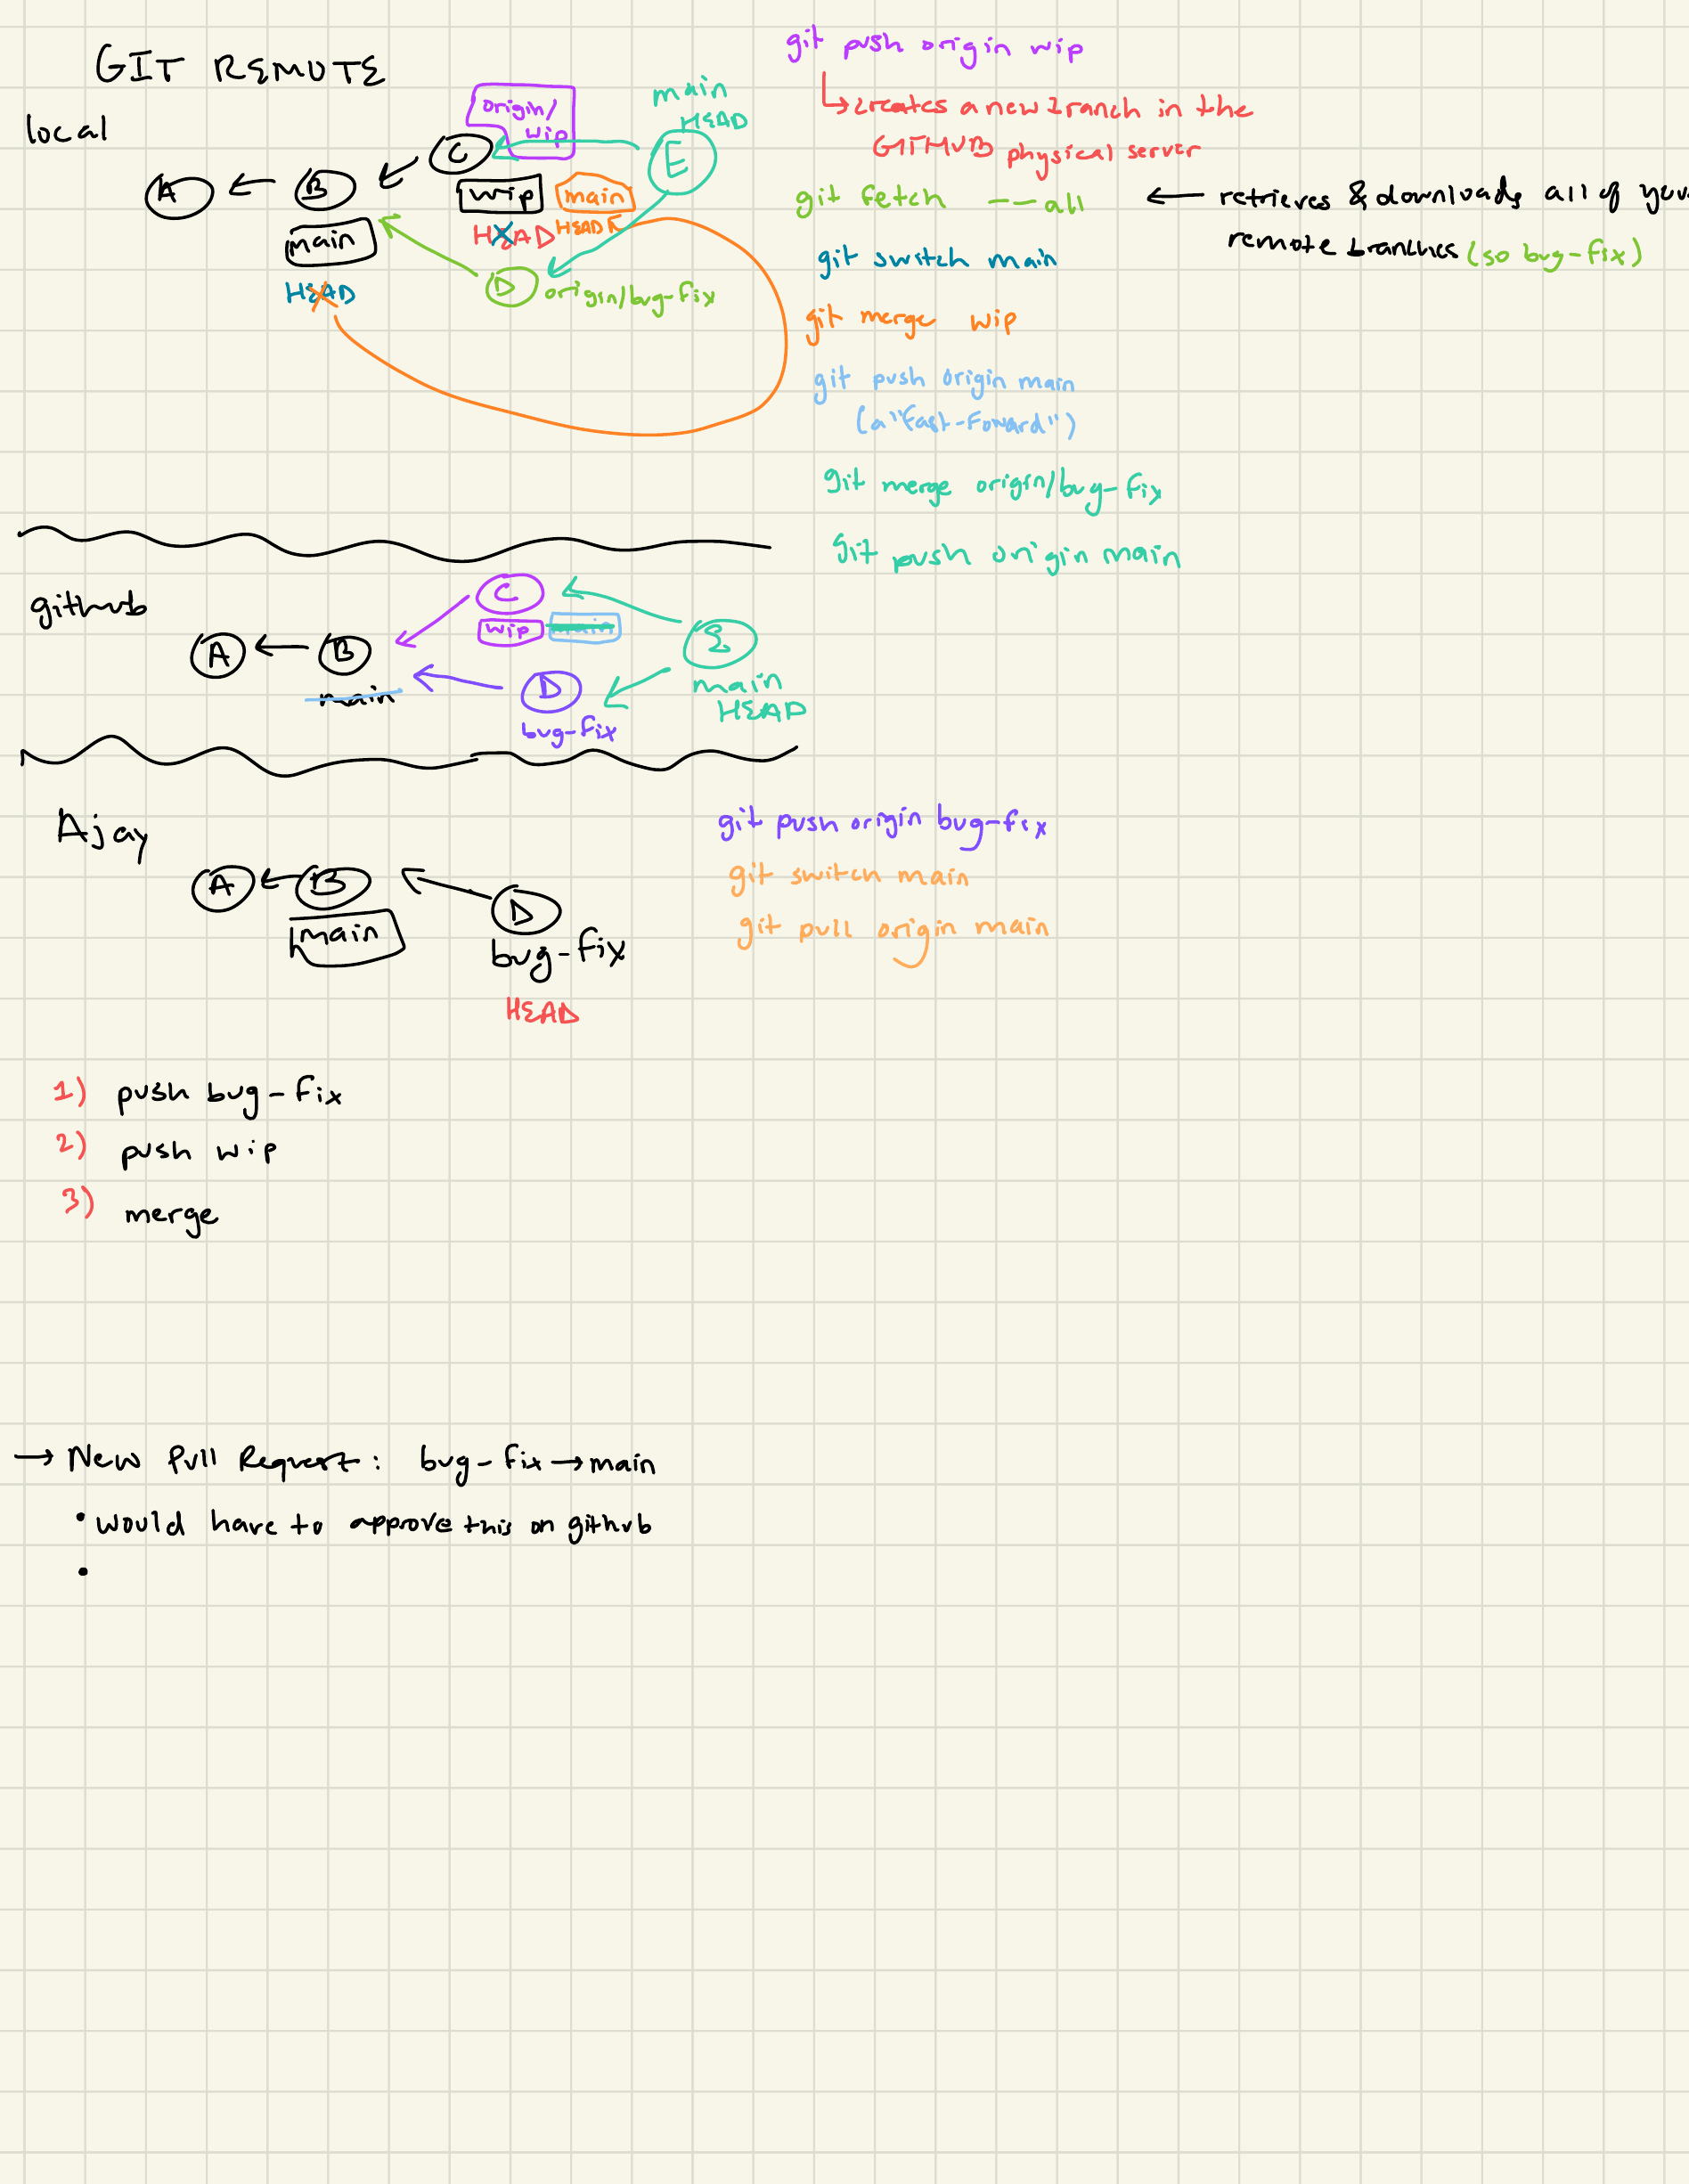 GIT REMOTE
local
A
B
main
HEAD
C
origin/
wip
wip
main
HEAD
HEAD
D
origin/bug-fix
main
HEAD
E
git push origin wip
creates a new branch in the
GITHUB physical server
git fetch --all
retrieves & downloads all of your
remote branches (so bug-fix)
git switch main
git merge wip
git push origin main
(a "fast-foward")
git merge origin/bug-fix
git push origin main
github
A
B
main
C
wip
main
D
bug-fix
E
main
HEAD
Ajay
A
B
main
D
bug-fix
HEAD
git push origin bug-fix
git switch main
git pull origin main
1) push bug-fix
2) push wip
3) merge
→ New Pull Request: bug-fix → main
• would have to approve this on github
•